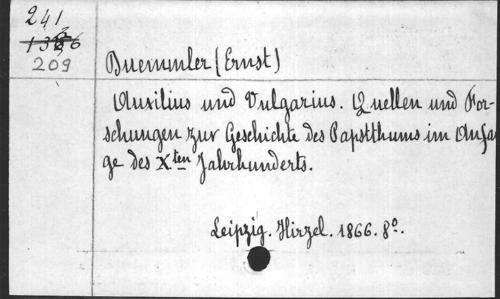 241
209
Duemmler (Ernst)
Auxilius und Vulgarius. Quellen und For-
schungen zur Geschichte des Papstthums im Anfa
ge des Xten Jahrhunderts.
Leipzig. Hirzel. 1866. 8º.